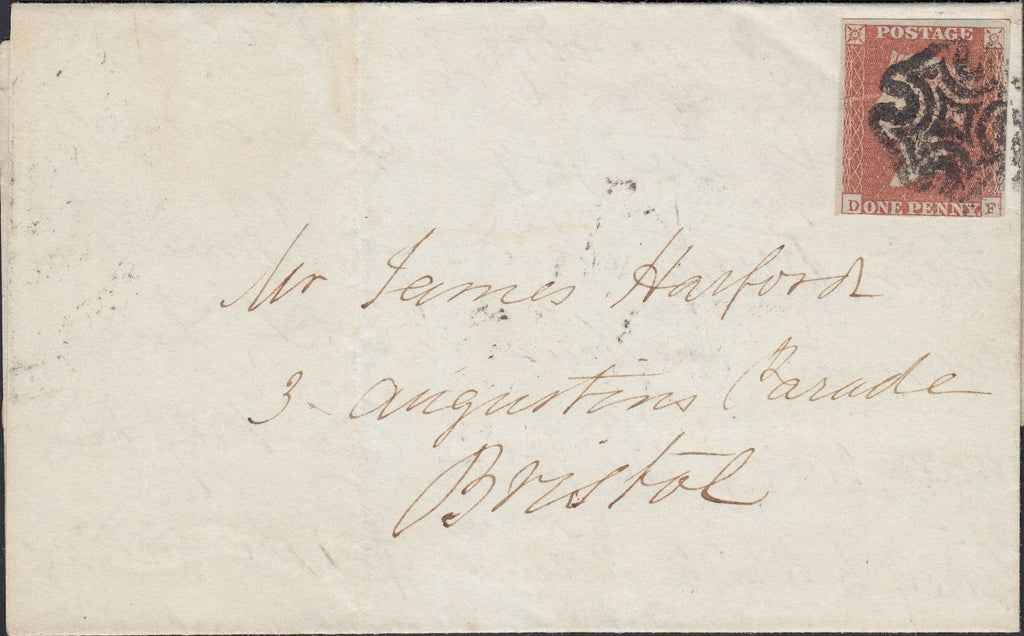 POSTAGE
D ONE PENNY. F
Mr James Harford
3 - Augustins Parade
Bristol